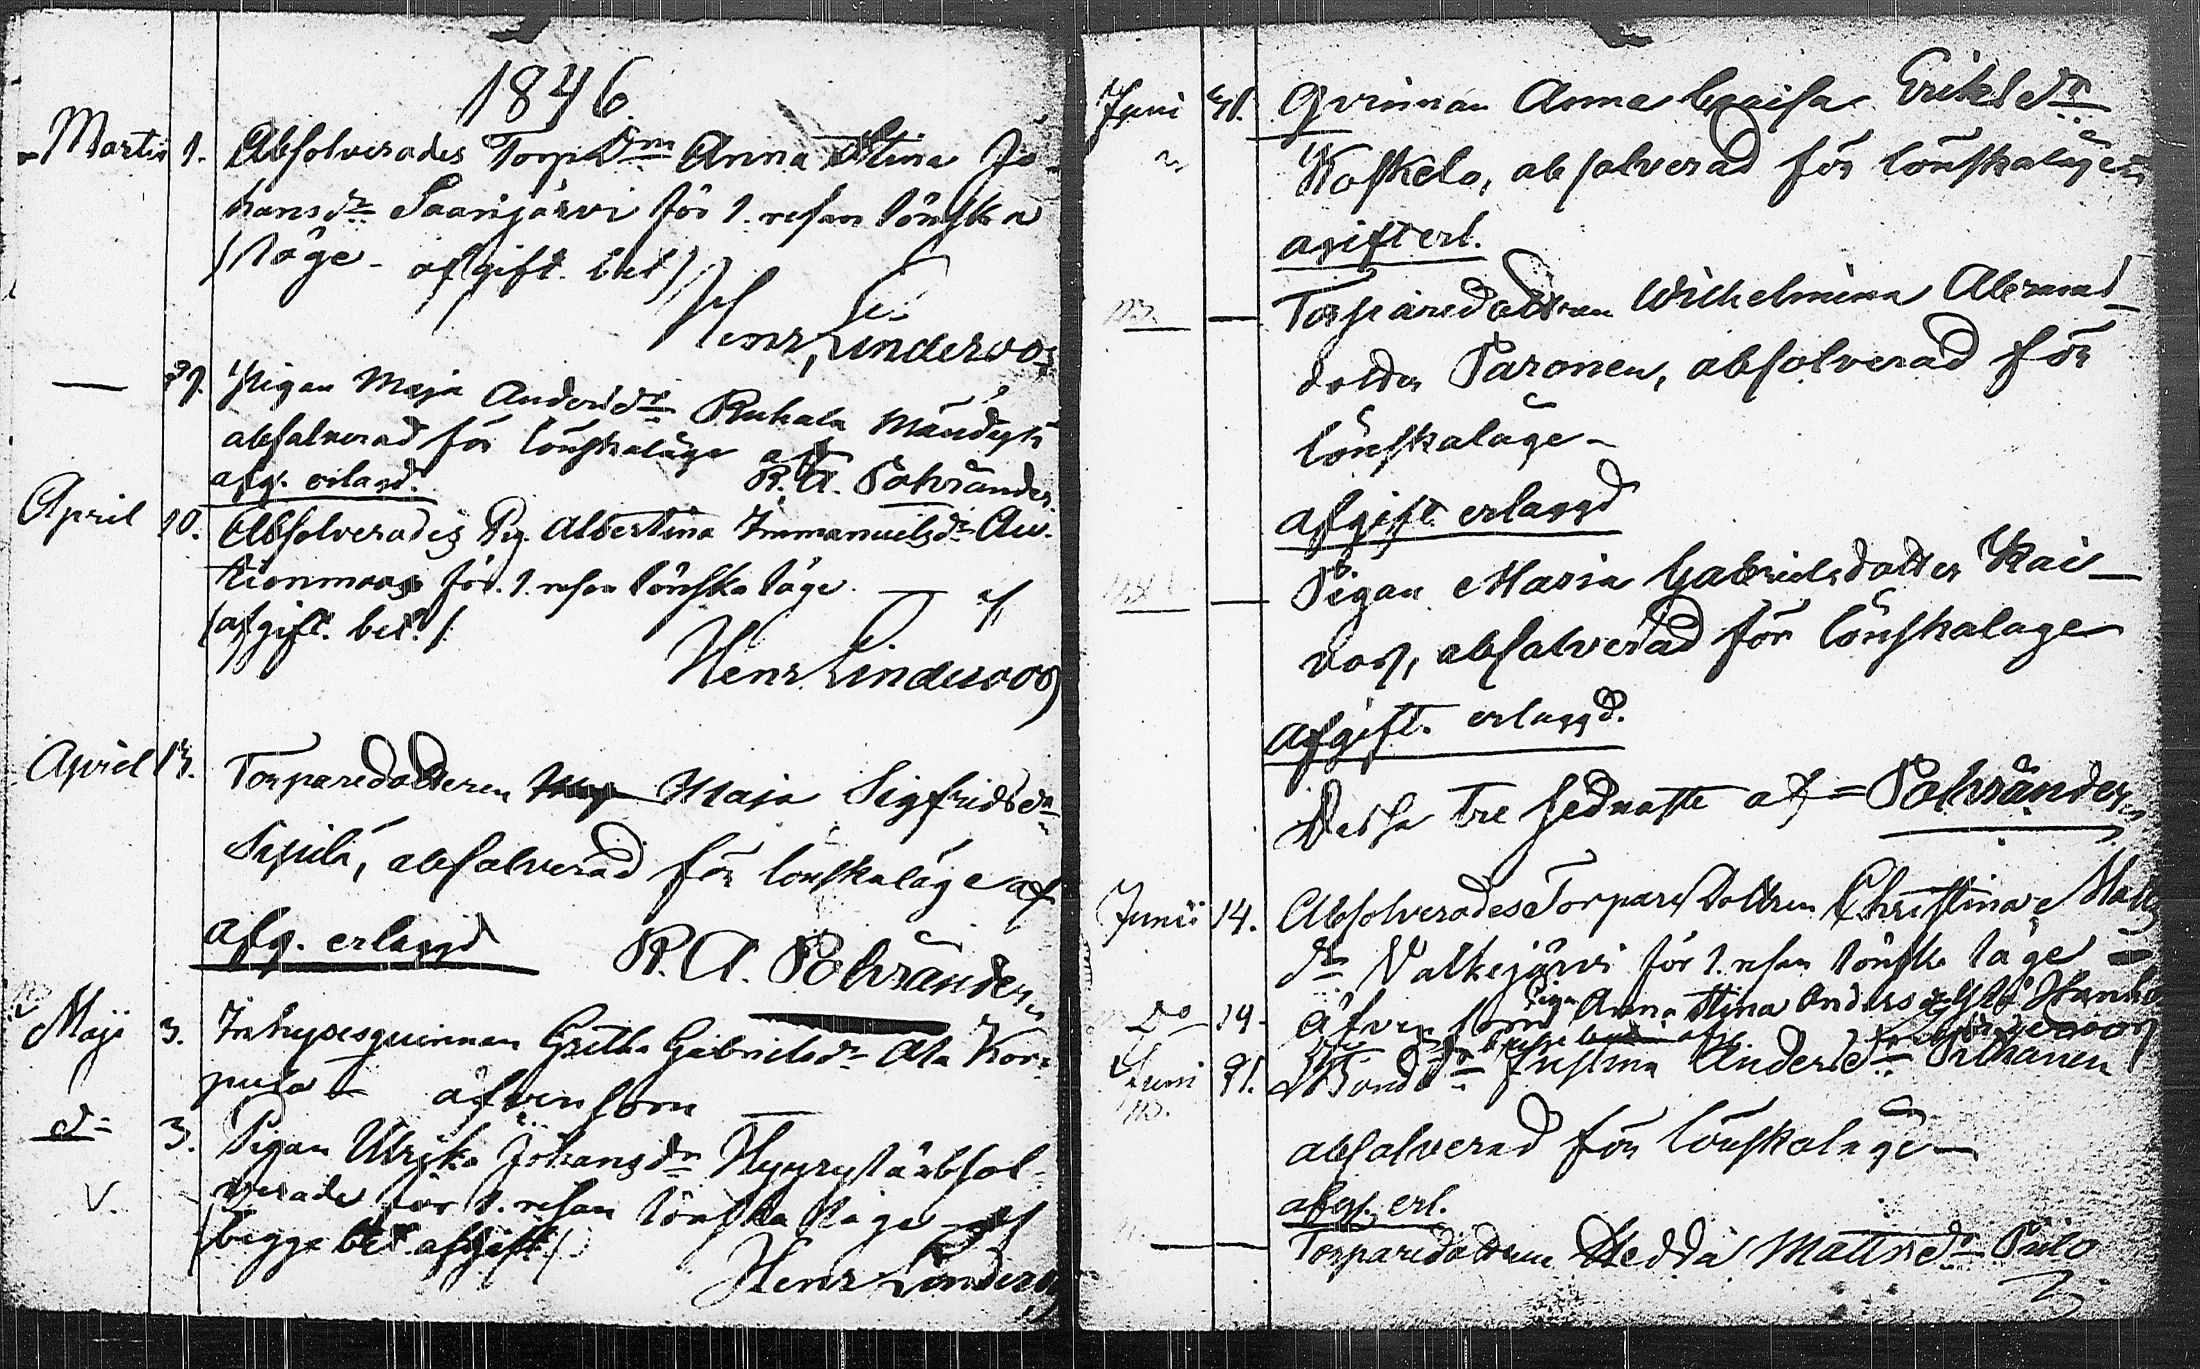 1846
Martii 1. Absolverades Torp.Drn Anna Stina Jo-
hansdr Saarijärvi för 1. resan lönska
läge - afgift. bet/
af
Henr Linderoos
— 29. Pigan Maja Andersdr Ruhala Mändyst
absolverad för lönskaläge af
afg. erlagd. R. A. Pohränder
April 10. Absolverades Pig. Albertina Immanuelsdr Au-
tionmaa för 1. resan lönska läge — af
/afgift. bet./
Henr Linderoos
April 13. Torparedotteren Maja Sigfridsdr
Sipilä, absolverad för lönskaläge af
afg. erlagd R. A. Pohränder
Maji 3. Inhysesquinnan Gretha Gabrielsdr Ala Kor-
pula — äfvensom
do 3. Pigan Ulrika Johansdr Hyyrystä absol-
verade för 1. resan lönska läge af
/begge bet. afgift/
Henr Linderoos
V.
Juni 31. Qvinnan Anna Cajsa Eriksdr
Koskelo, absolverad för lönskaläge
afift erl.
— Torparedottren Wilhelmina Abramsdotter
Paronen, absolverad för
lönskaläge -
afgift erlaggd
— Pigan Maria Gabrielsdotter Kai-
voo, absolverad för lönskaläge
afgift. erlaggd.
Dessa tre sednaste af = Pohränder
Junii 14. Absolverades Torpare Dottren Christina Matts
dr Valkejärvi för 1. resan lönska läge
Do 14. äfvensom Pigan Anna Stina Andersdr Hanho
Juni 21. Bondedr Justina Andersdr Pithänen
absolverad för lönskaläge
afg. erl.
— Torparedottren Hedda Mattsdr Pülo